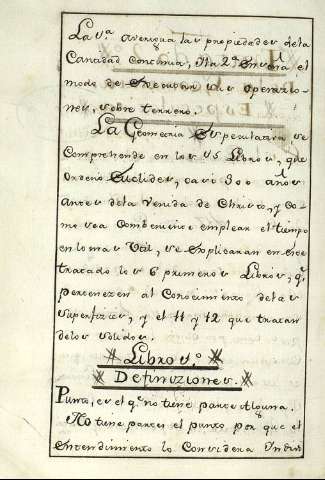 La 1ª averigua las propiedades dela
Cantidad Continua, y la 2ª enseña el
modo de Executar sus operazio-
nes, sobre terreno.
La Geometria Especulativa se
Comprehende en los 15 Libros, que
Ordenó Euclides, casi 300 años
antes dela Venida de Christo, y Co-
mo sea Combeniente emplear el tiempo
en lo mas Util, se explicaran en este
tratado los 6 primeros Libros, q.
pertenezen al Conocimiento delas
superfizies, y el 11 y 12 que tratan
delos solidos.
Libro 1.º
Definiziones.
Punto, es el q. no tiene parte Alguna.
No tiene partes el punto, por que el
entendimiento lo Considera Indivi